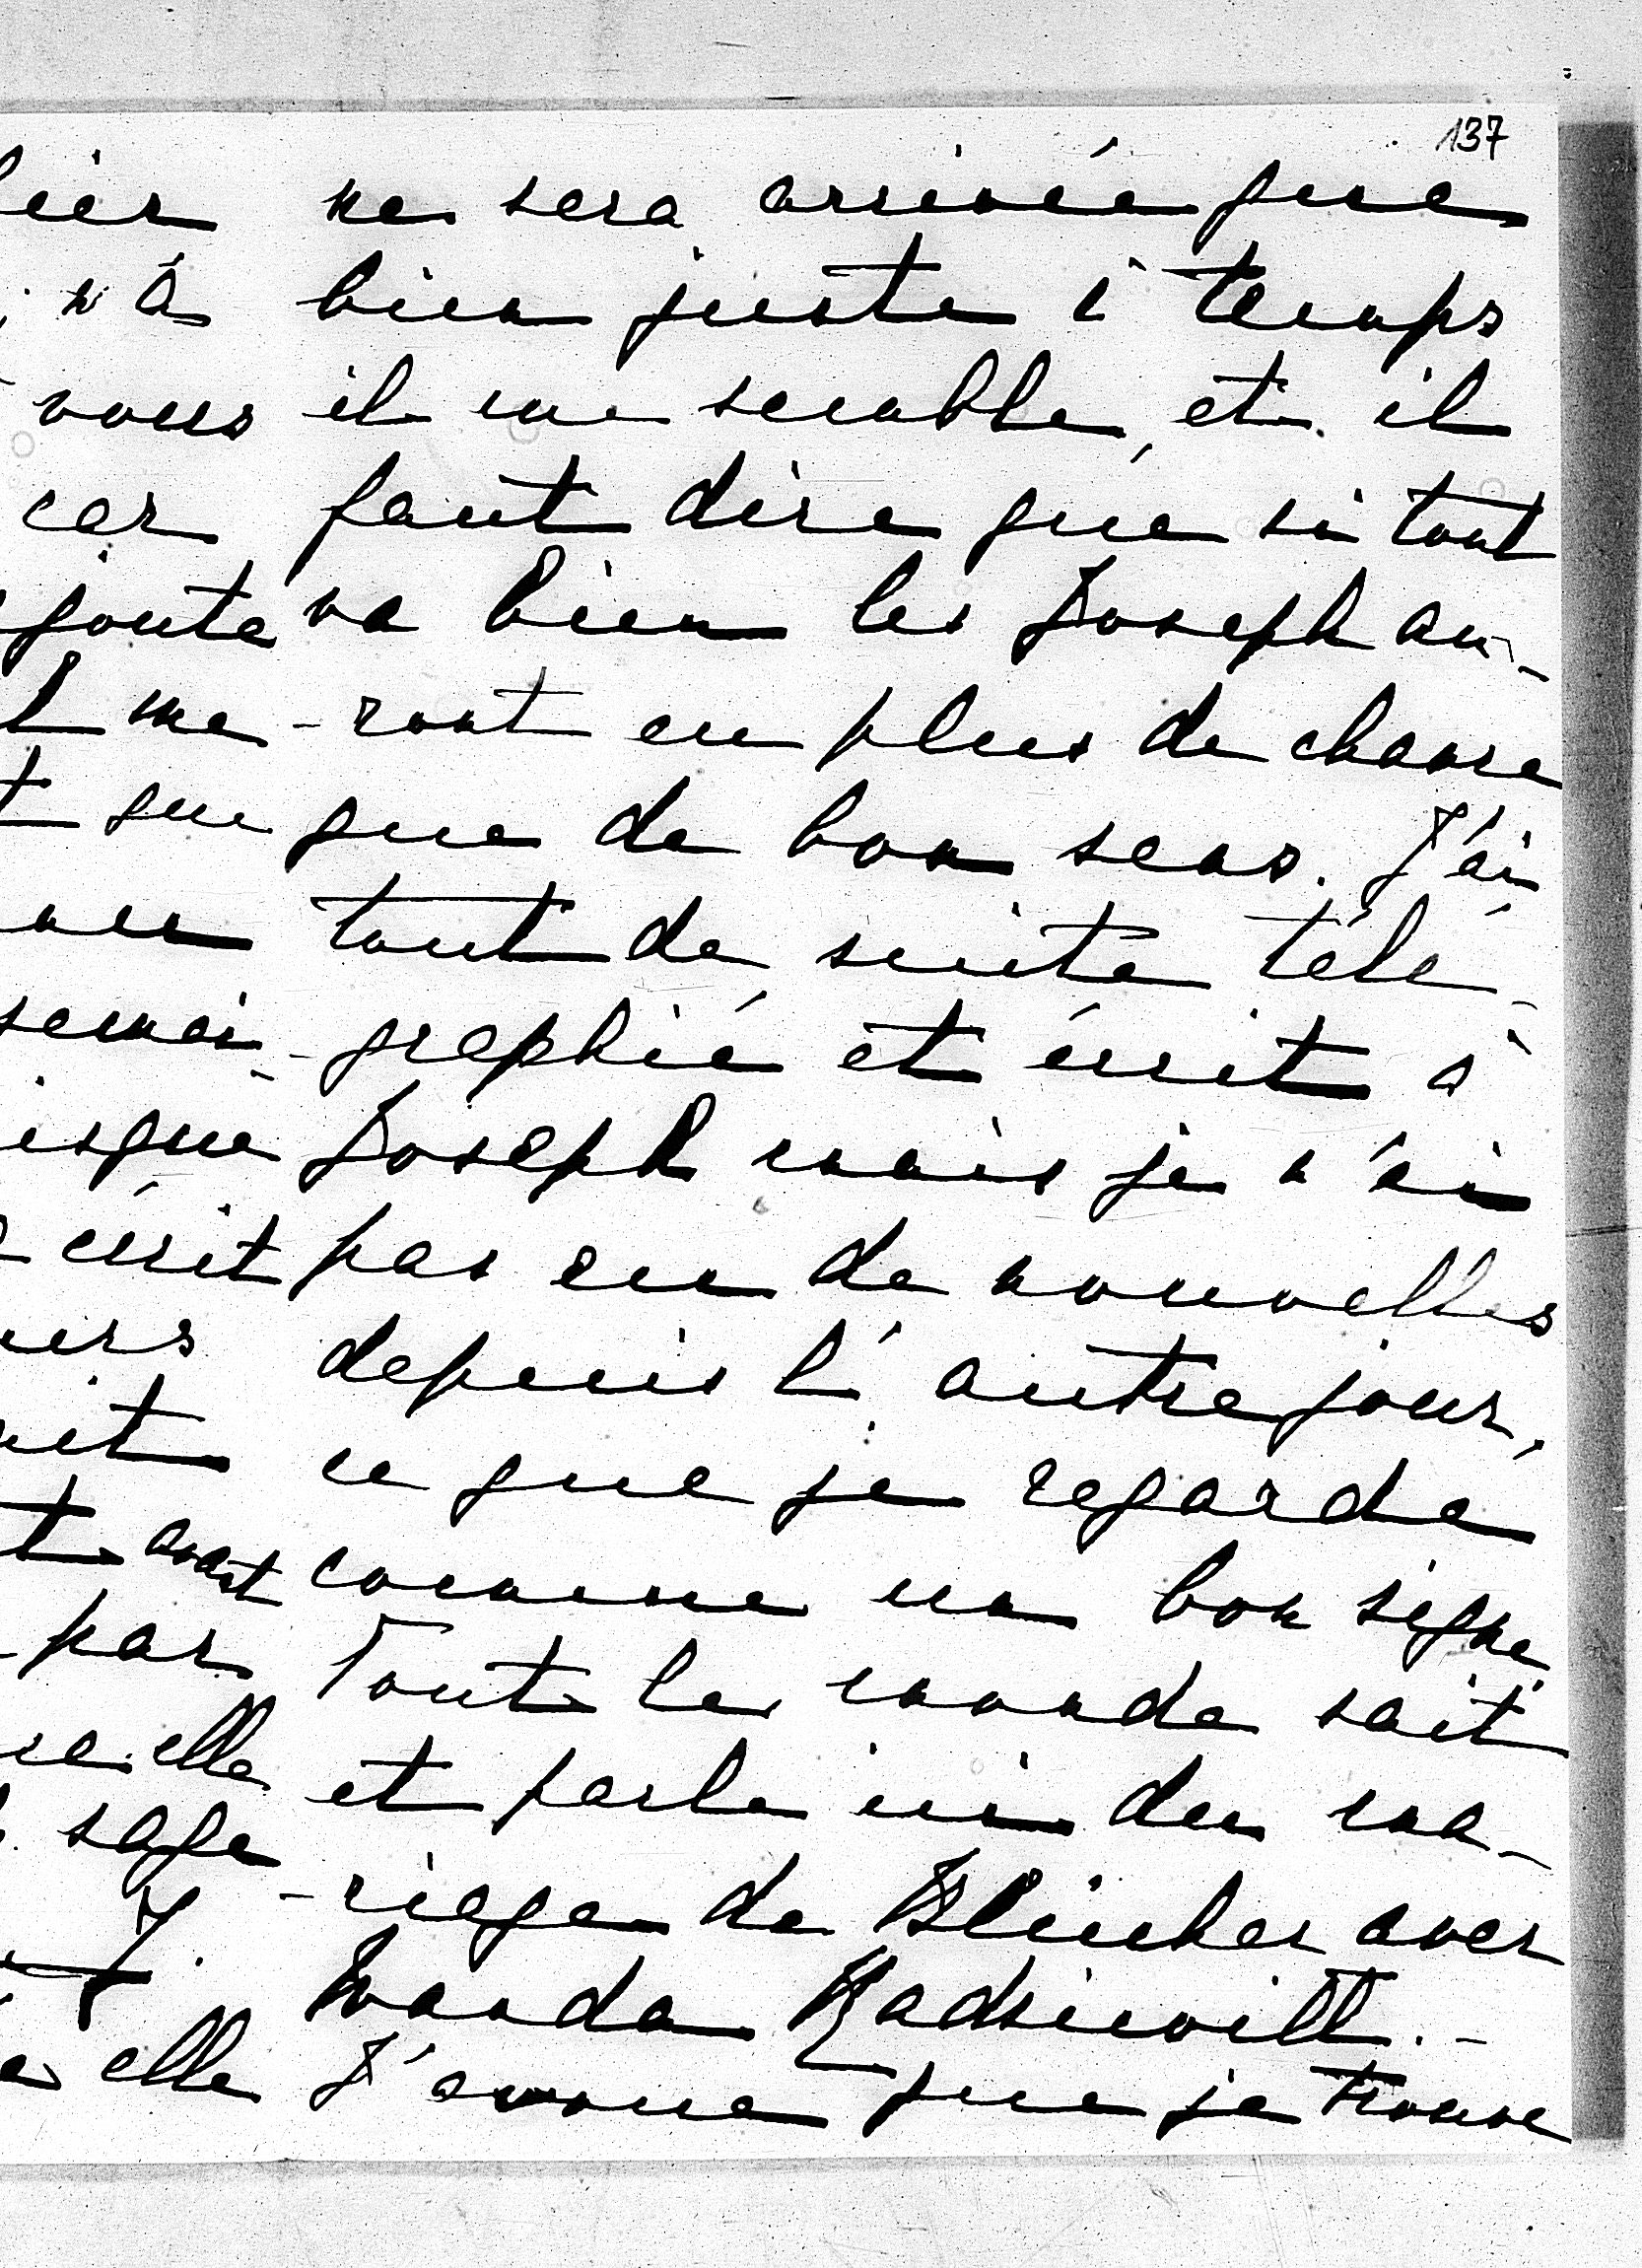 137
ne sera arrivée que
bien juste à temps
il me semble, et il
faut dire que si tout
va bien les Joseph au-
-ront eu plus de chance
que de bon sens. J'ai
tout de suite télé-
-graphié et écrit à
Joseph mais je n'ai
pas eu de nouvelles
depuis l'autre jour,
ce que je regarde
comme un bon signe.
Tout le monde sait
et parle ici du ma-
-riage de Blücher avec
Wanda Radziwill. -
J'avoue que je trouve
vous
car
me
que
semai-
écrit
avant
par
elle
sage
elle